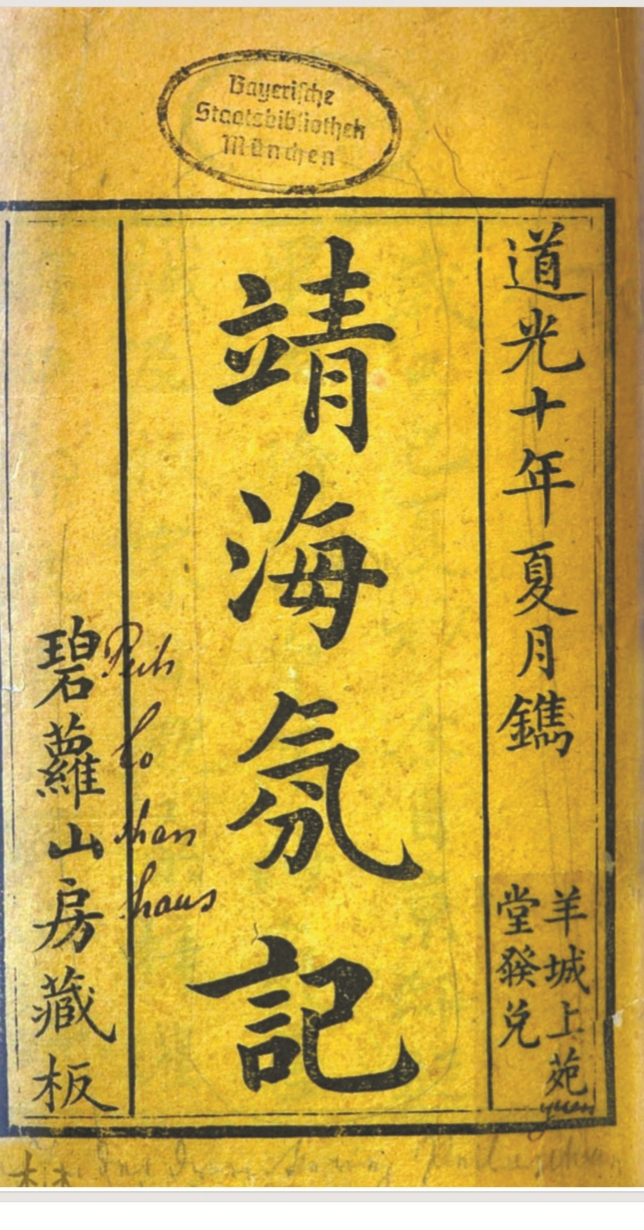 Bayerische
Staatsbibliothek
München
道光十年夏月鐫
羊城上苑
堂發兌
靖海氛記
碧蘿山房藏板
Peih
lo
shan
haus
yuen